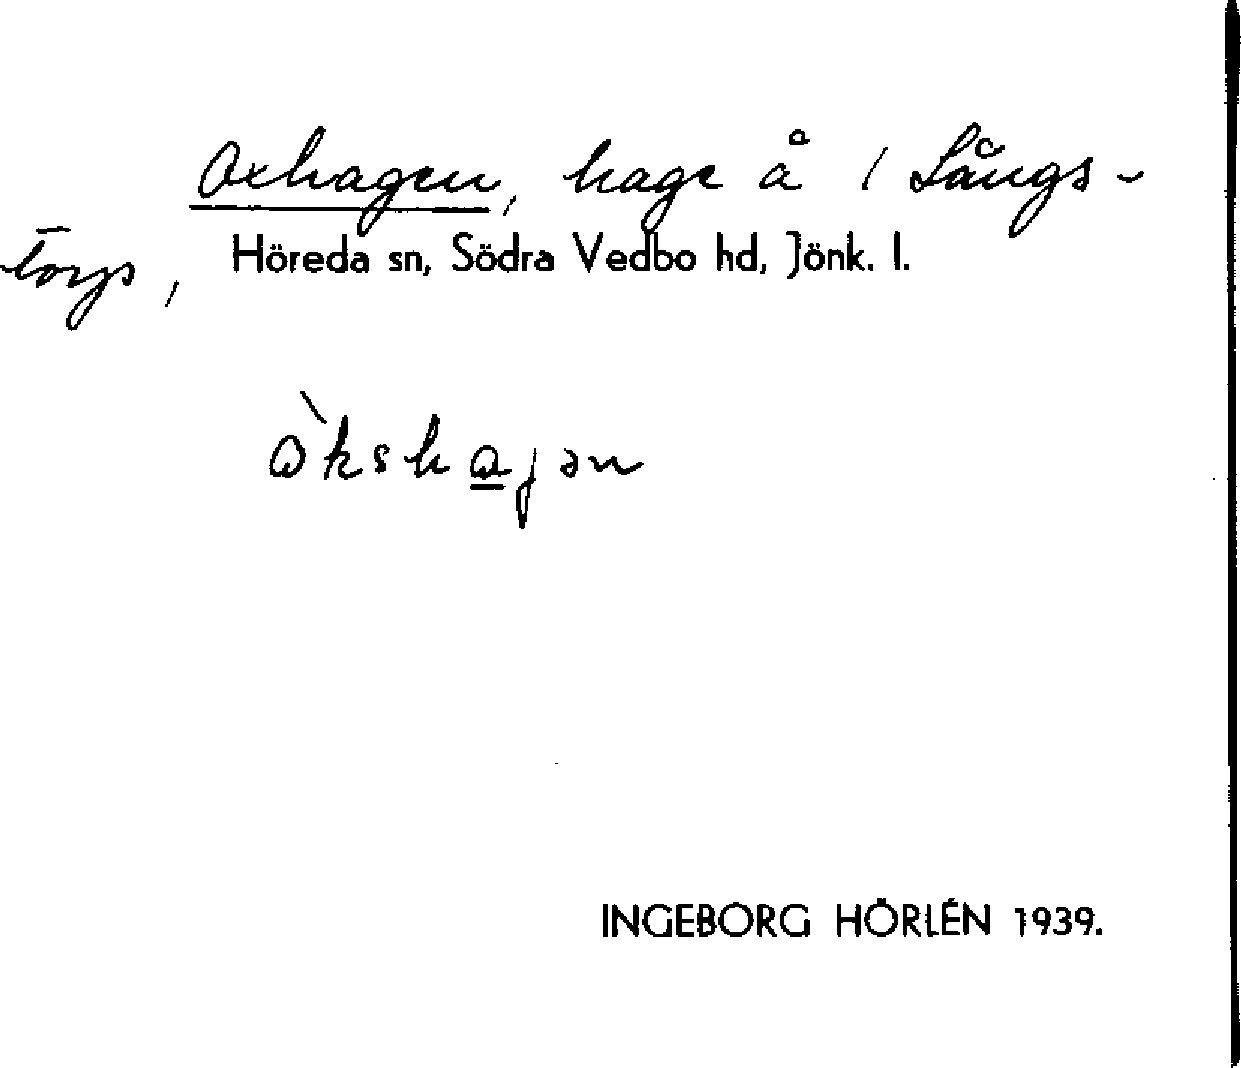 Oxhagen, hage å / Långs-
torp,
Höreda sn, Södra Vedbo hd, Jönk. l.
òkshagən
INGEBORG HÖRLÉN 1939.